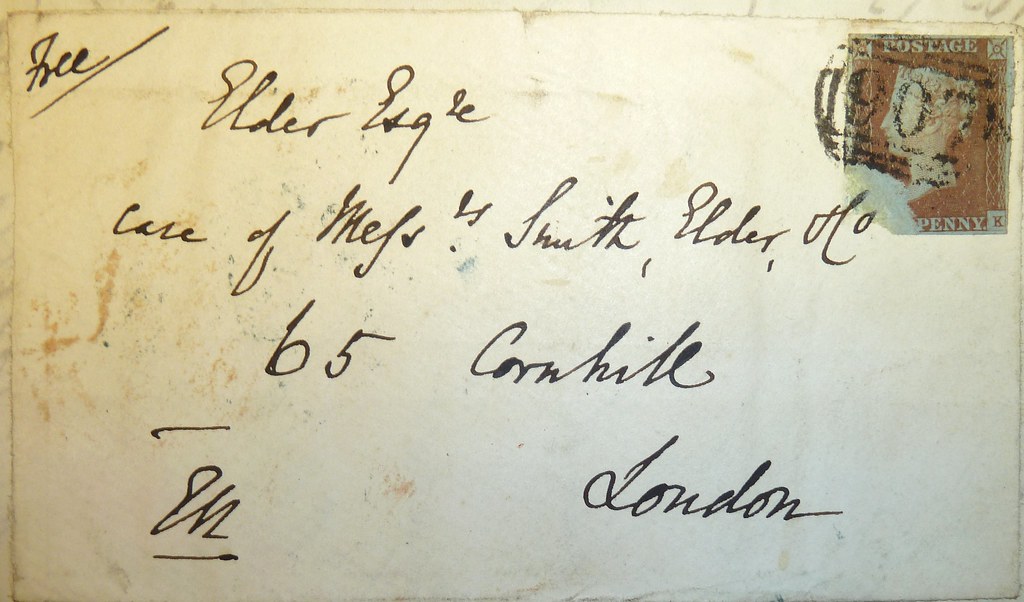 Free/
Elder Esqre
care of Messrs. Smith, Elder, & Co
65 Cornhill
London
POSTAGE
907
PENNY. K